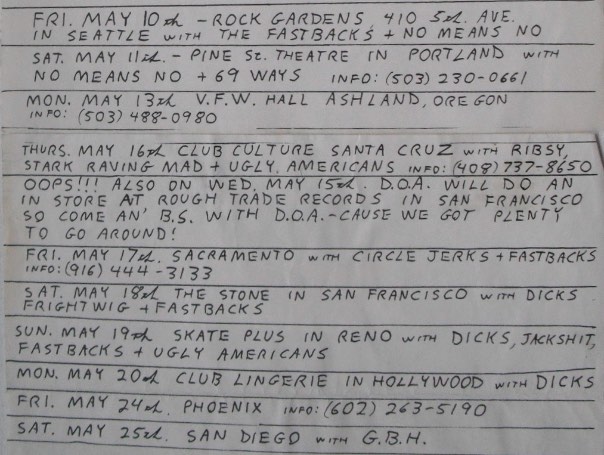 FRI. MAY 10th - ROCK GARDENS, 410 5th. AVE.
IN SEATTLE WITH THE FASTBACKS + NO MEANS NO
SAT. MAY 11th. - PINE St. THEATRE IN PORTLAND WITH
NO MEANS NO + 69 WAYS INFO: (503) 230-0661
MON. MAY 13th V.F.W. HALL ASHLAND, OREGON
INFO: (503) 488-0980
THURS. MAY 16th CLUB CULTURE SANTA CRUZ WITH RIBSY,
STARK RAVING MAD + UGLY, AMERICANS INFO: (408) 737-8650
OOPS!!! ALSO ON WED. MAY 15th. D.O.A. WILL DO AN
IN STORE AT ROUGH TRADE RECORDS IN SAN FRANCISCO
SO COME AN' B.S. WITH D.O.A. - CAUSE WE GOT PLENTY
TO GO AROUND!
FRI. MAY 17th. SACRAMENTO WITH CIRCLE JERKS + FASTBACKS
INFO: (916) 444-3133
SAT. MAY 18th THE STONE IN SAN FRANCISCO WITH DICKS
FRIGHTWIG + FASTBACKS
SUN. MAY 19th SKATE PLUS IN RENO WITH DICKS, JACKSHIT,
FASTBACKS + UGLY AMERICANS
MON. MAY 20th CLUB LINGERIE IN HOLLYWOOD WITH DICKS
FRI. MAY 24th. PHOENIX INFO: (602) 263-5190
SAT. MAY 25th. SAN DIEGO WITH G.B.H.